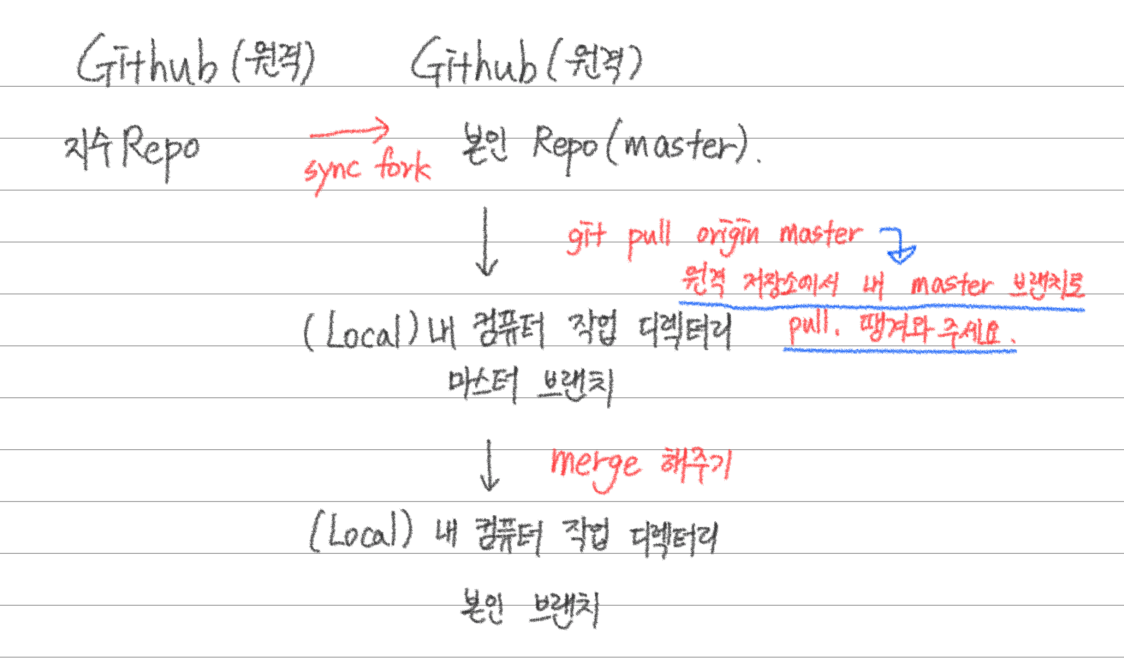 Github (원격) Github (원격)
지수 Repo sync fork 본인 Repo (master).
git pull origin master
원격 저장소에서 내 master 브랜치로
(Local) 내 컴퓨터 작업 디렉터리 pull. 땡겨와 주세요.
마스터 브랜치
merge 해주기
(Local) 내 컴퓨터 작업 디렉터리
본인 브랜치